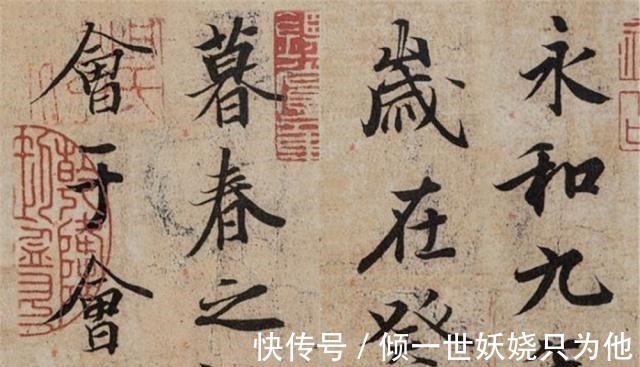 永和九
歲在癸
暮春之
會于會
快传号 / 倾一世妖娆只为他